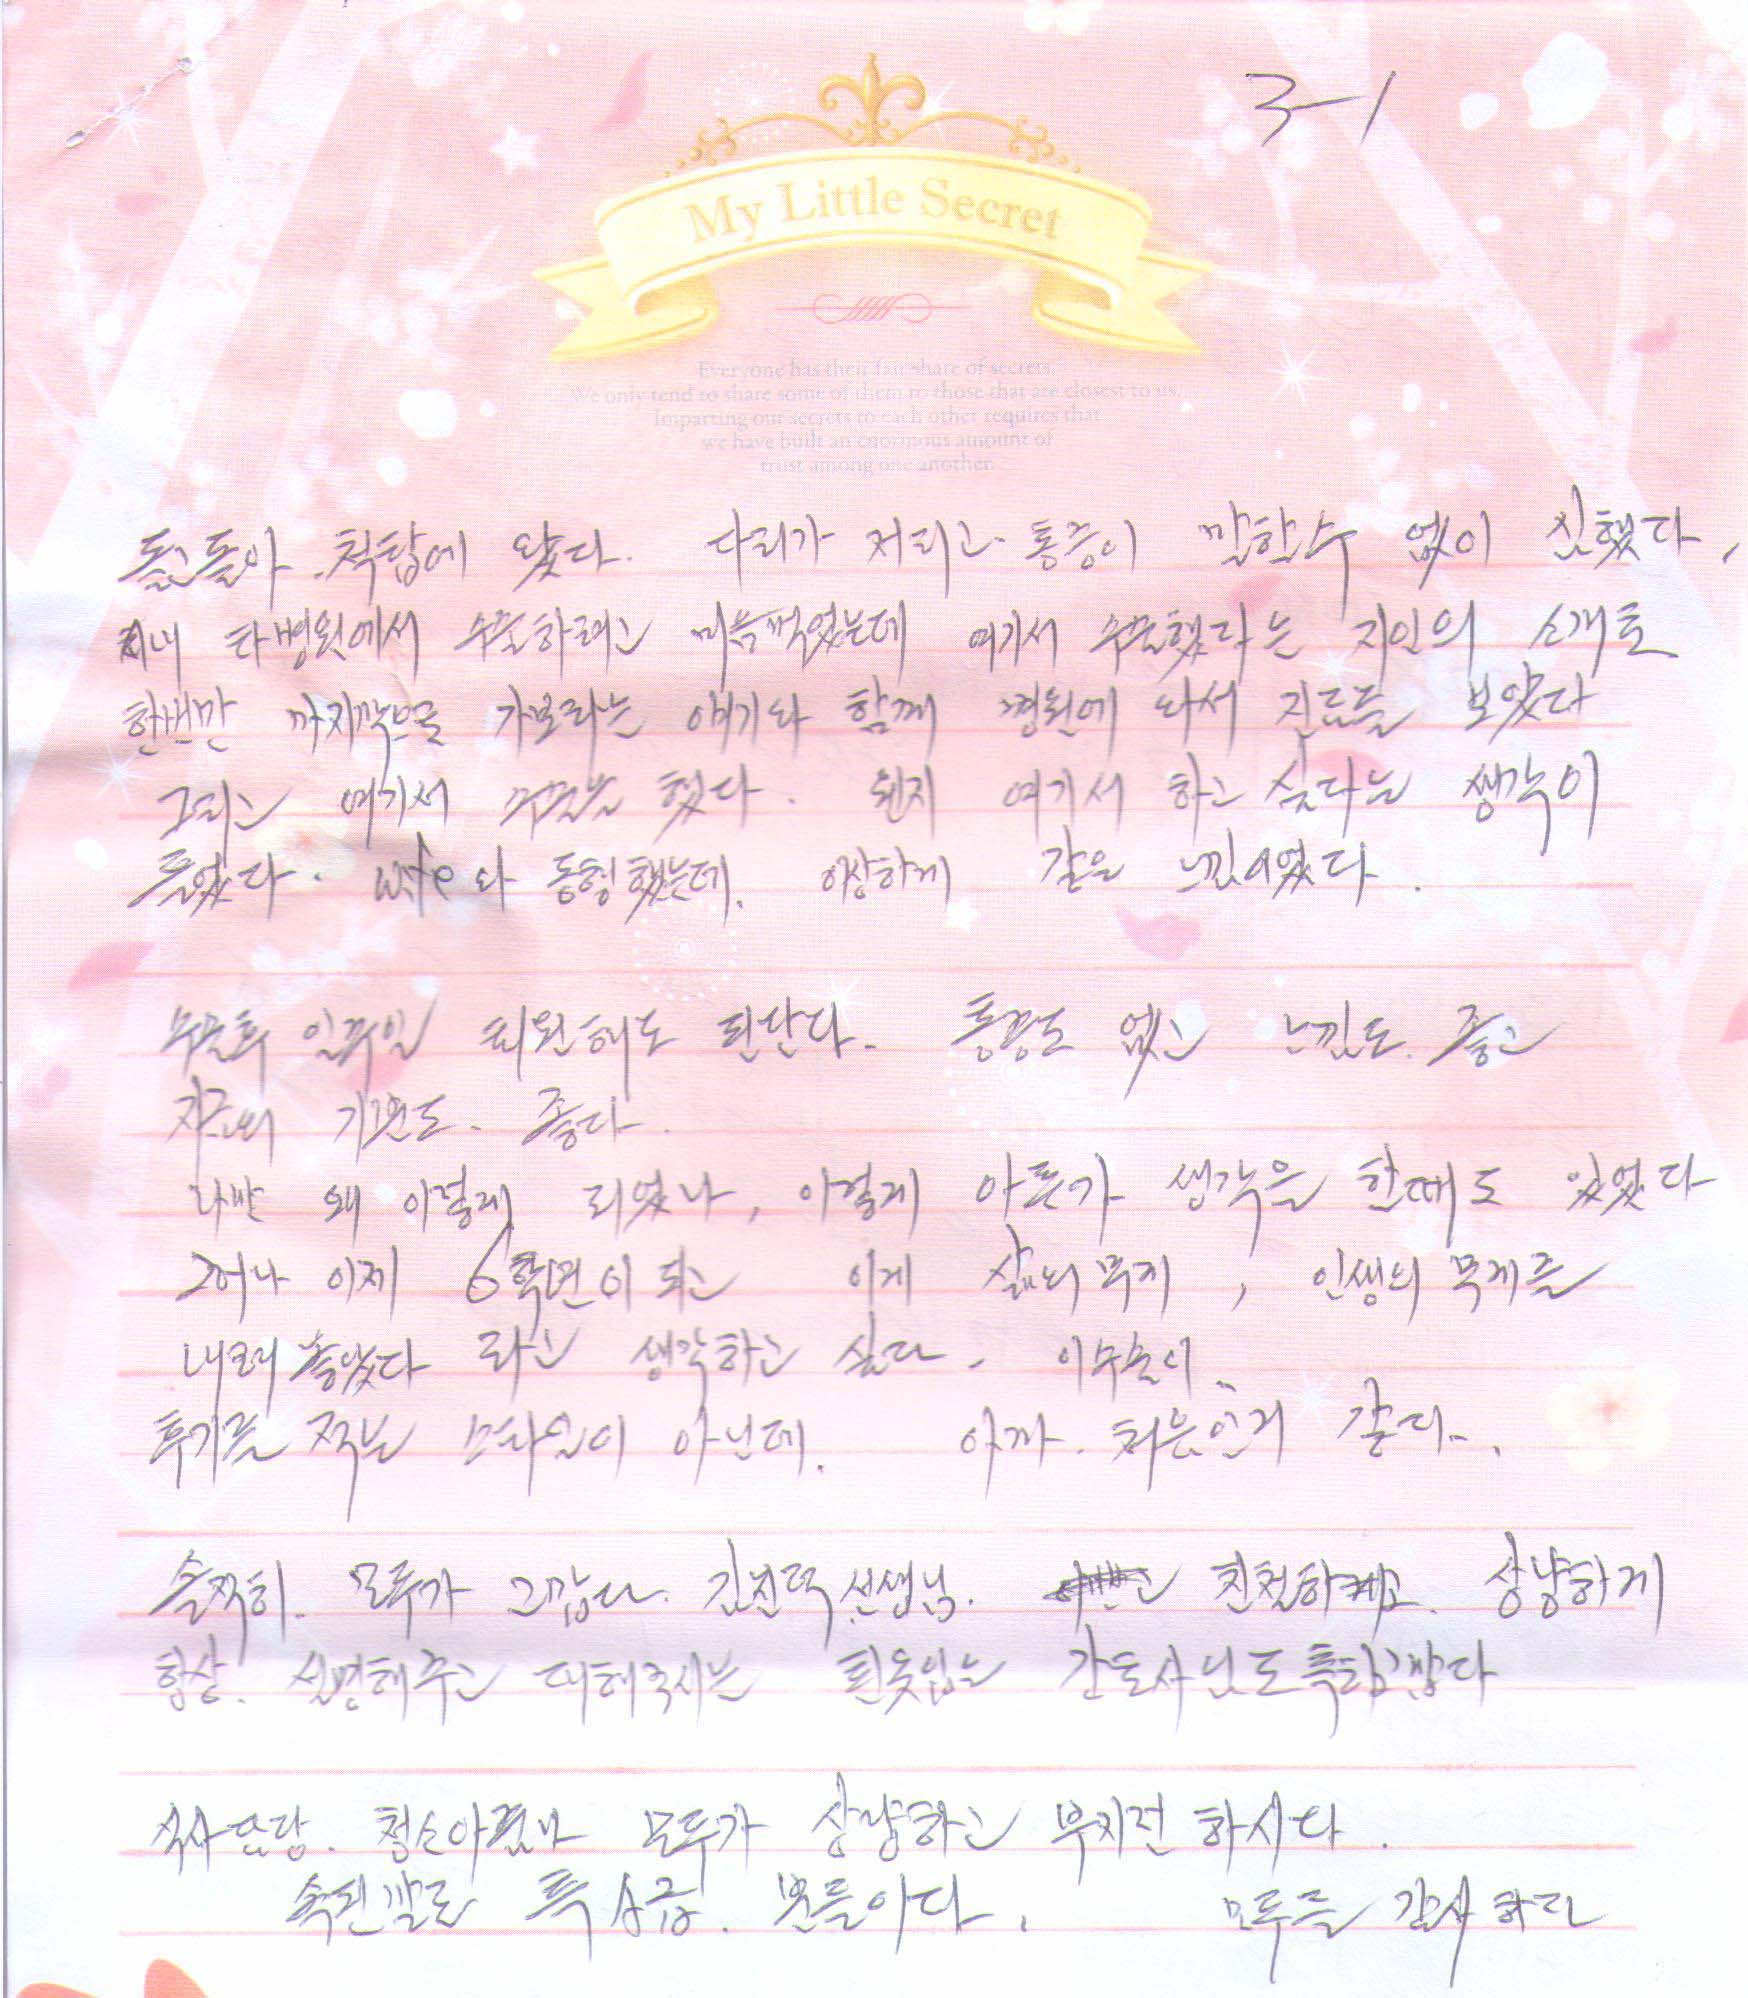 3-1
My Little Secret
Everyone has their fair share of secrets.
We only tend to share some of them to those that are closest to us.
Imparting our secrets to each other requires that
we have built an enormous amount of
trust among one another.
돌고돌아. 척탑에 왔다. 다리가 저리고. 통증이 말할수 없이 심했다.
시내 타병원에서 수술하려고 마음먹었는데 여기서 수술했다는 지인의 소개로
한번만 마지막으로 가보라는 얘기와 함께 병원에 와서 진료를 보았다
그리고 여기서 수술을 했다. 왠지 여기서 하고 싶다는 생각이
들었다. wife와 동행했는데. 이상하게 같은 느낌이었다.
수술후 일주일 퇴원해도 된단다. 통증도 없고 느낌도. 좋고
지금의 기분도. 좋다.
나만 왜 이렇게 되었나, 이렇게 아픈가 생각을 한때도 있었다
그러나 이제 6학년이 되고 이게 삶의 무게, 인생의 무게를
내려 놓았다 라고 생각하고 싶다. 이수술이..
후기를 적는 스타일이 아닌데. 아마. 처음인거 같다..
솔직히. 모두가 고맙다. 김진덕 선생님. 친절하게고. 상냥하게
항상. 설명해주고 대해주시는 흰옷입는 간호사님도 특히
식사담당. 청소아줌마 모두가 상냥하고 부지런 하시다.
속된말로 특 A급. 분들이다. 모두를 감사하다